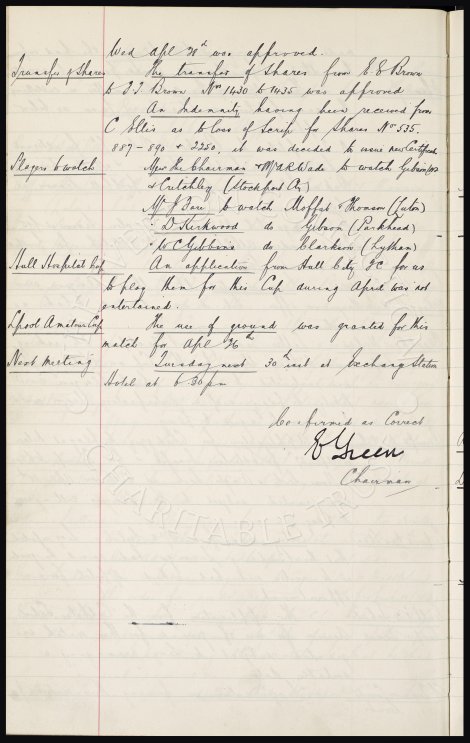 Wed Apl 26th was approved.
Transfer of Shares The transfer of Shares from E E Brown
to J J. Brown Nos 1430 to 1435 was approved
An Indemnity having been received from
C Ellis as to loss of Scrip for Shares No 535,
889 - 890 & 2250, it was decided to issue new Certificate
Players to watch Messrs the Chairman & W R Wade to watch
& Critchley (Stockport Co)
Mr J Fare to watch Moffat & Thomson (Luton)
" D Kirkwood do Gibson (Parkhead)
" W C Gibbins do Clarkson (Lytham)
Hull Hospital Cup An application from Hull City FC for us
to play them for this Cup during April was not
entertained.
Lpool Amateur Cup The use of ground was granted for this
match for Apl 26th
Next Meeting Tuesday next 30th inst at Exchange Station
Hotel at 6.30 pm
Confirmed as Correct
E Green
Chairman
CHARITABLE TRUST